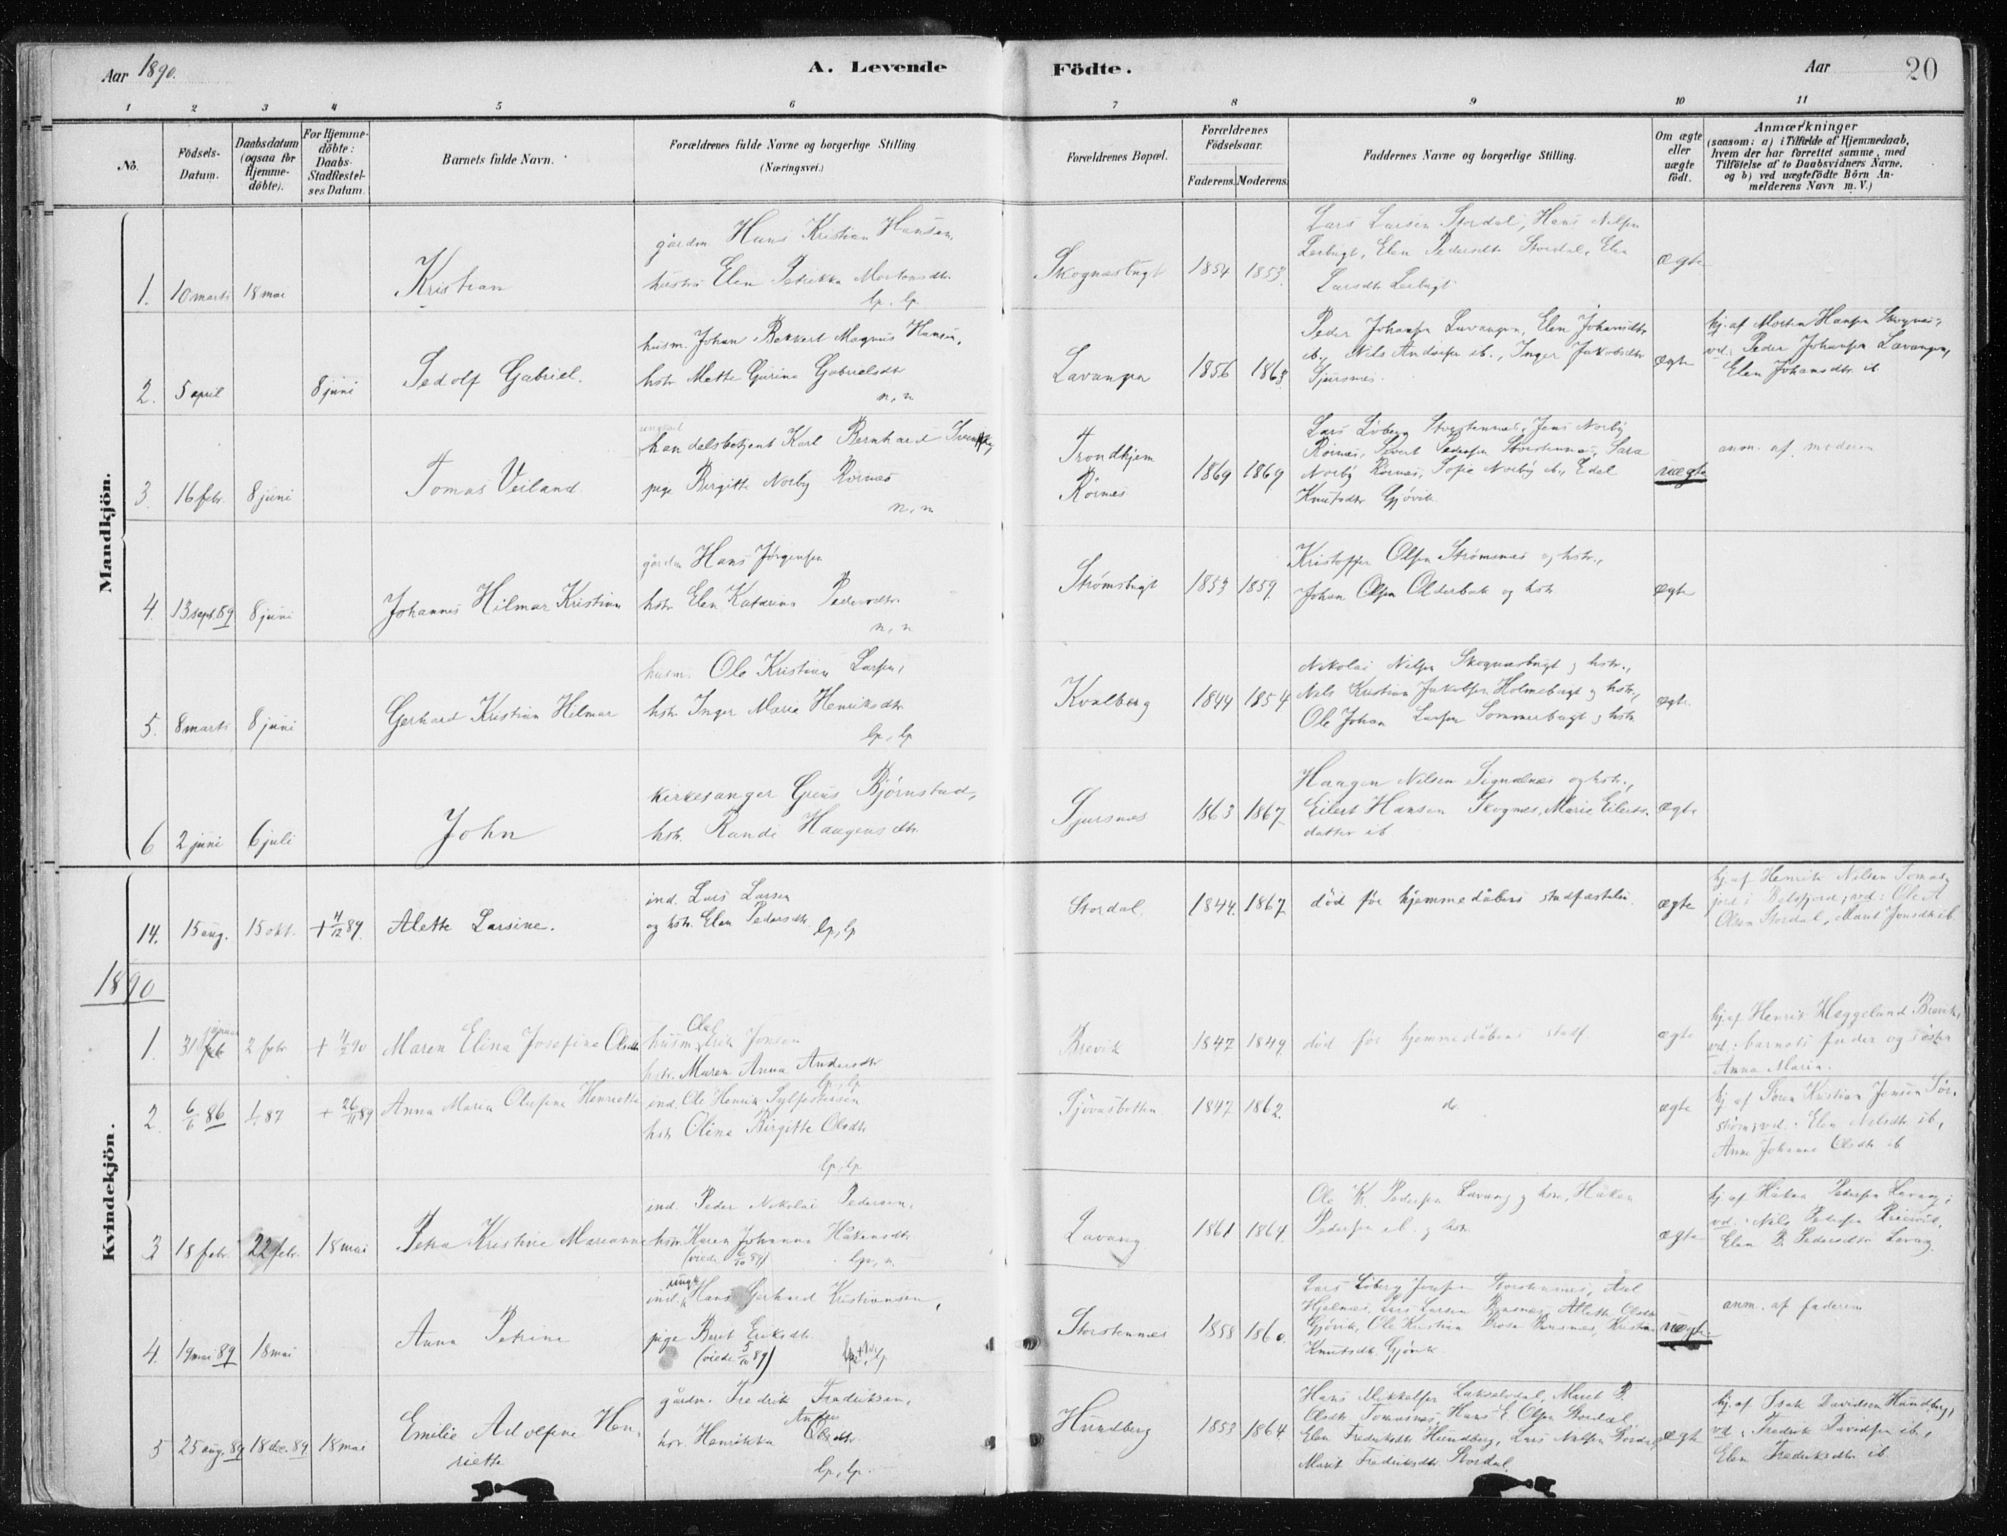 Aar 1890.
A. Levende Födte.
Aar
20
1 2 3 4 5 6 7 8 9 10 11
No.
Födsels-Datum.
Daabsdatum (ogsaa for Hjemmedöbte).
For Hjemmedöbte: Daabs-Stadfæstelses Datum.
Barnets fulde Navn.
Forældrenes fulde Navne og borgerlige Stilling
(Næringsvei.)
Forældrenes Bopæl.
Forældrenes Födselsaar.
Faderens. Moderens.
Faddernes Navne og borgerlige Stilling.
Om ægte eller uægte födt.
Anmærkninger
(saasom: a) i Tilfælde af Hjemmedaab, hvem der har forrettet samme, med Tilföielse af to Daabsvidners Navne, og b) ved uægtefödte Börn Anmelderens Navn m. V.)
Mandkjön.
1. 10 marts 18 mai
Kristian
gårdm Hans Kristian Hansen,
hustru Elen Petrikka Mortensdtr.
lp. lp.
Skognæsbugt 1854 1853.
Lars Larsen Stordal, Hans Nilsen
Leirbugt, Elen Pedersdtr Stordal, Elen
Larsdtr Leirbugt
ægte
2. 5 april 8 juni
Pedolf Gabriel.
husm. Johan Bekkert Magnus Hansen,
hstr. Mette Gurine Gabrielsdtr
n, n
Lavangen 1856 1863.
Peder Johansen Lavangen, Elen Johansdtr
ib., Nils Andersen ib., Inger Jakobsdtr
Sjursnes.
ægte
hj. af Morten Hansen Skognes,
vd: Peder Johansen Lavangen,
Elen Johansdtr. ib
3. 16 febr. 8 juni
Tomas Veiland
ungkarl
handelsbetjent Karl Bernhard
pige Birgitte Norby Rörnes
n, n
Trondhjem
Rörnes
1869 1869
Lars Löberg Storstennes, Jens Norby
Rörnes, Sivert Pedersen Storstennes, Sara
Norby Rörnes, Sofie Norby ib, Edel
Knutsdtr Gjövik
uægte
anm. af moderen
4. 13 sept. 89. 8 juni
Johannes Hilmar Kristian
gårdm Hans Jørgensen
hstr Elen Katarina Pedersdtr.
n, n
Strømsbugt 1853 1859
Kristoffer Olsen Strømsnes og hstr.,
Johan Olsen Olderbak og hstr
ægte
5. 8 marts 8 juni
Gerhard Kristian Hilmar
husm. Ole Kristian Larsen,
hstr Inger Maria Henriksdtr
lp, lp
Kvalberg 1844 1854
Nikolai Nilsen Skognæsbugt og hstr.,
Nils Kristian Jakobsen Holmebugt og hstr.,
Ole Johan Larsen Sommerbugt og hstr
ægte
6 2 juni 6 juli
John
kirkesanger Gjeus Bjørnstad,
hstr. Randi Haagensdtr
Sjursnes 1863 1867
Haagen Nilsen Signalnes og hstr.,
Eilert Hansen Skognes, Marie Eilerts-
datter ib
ægte
Kvindekjön.
14. 15 aug. 15 okt. + 4/12 89.
Alette Larsine.
ind. Lars Larsen
og hstr. Elen Pedersdtr
lp, lp
Stordal. 1844. 1867.
död før hjemmedåbens stadfæstelse.
ægte
hj. af Henrik Nilsen Tomas-
jord i Balsfjord; vd: Ole A
Olsen Stordal, Marit Jonsdtr ib
1890
1. 31 januar 2 febr + 4/2 90
Maren Elina Josefine Olsdtr
husm Olal Erik Jonsen
hstr. Maren Anna Andersdtr
lp, lp
Brevik 1847 1849
död før hjemmedåbens stadf.
ægte
hj. af Henrik Hæggeland Brevik,
vd: barnets fader og söster
Anna Maria.
2. 6/6 86 1/1 87 + 26/11 89
Anna Maren Olufine Henriette
ind. Ole Henrik Sylfestersen
hstr Oline Birgitte Olsdtr
lp, lp
Sjövasbotten 1847 1862.
do
ægte
hj af Sören Kristian Jensen Sör-
ström; vd: Elen Nilsdtr ib,
Anne Johanne Olsdtr ib
3 18 febr. 22 febr. 18 mai
Petra Kristine Marianne
ind. Peder Nikolai Pedersen,
hstr Karen Johanna Håkensdtr
(viede 6/10 89)
lp, n
Lavang 1861 1864.
Ole K. Pedersen Lavang og hstr, Håken
Pedersen ib. og hstr
ægte
hj. af Håken Pedersen Lavang;
vd: Nils Pedersen
Elen B. Pedersdtr Lavang
4. 19 mai 89 18 mai
Anna Petrine
ungk
ind. Hans Gerhard Kristiansen,
pige Berit Eriksdtr
(viede 5/10 89)
Storstennes 1858 1860.
Lars Löberg Josefsen Storstennes, Axel
Hjelmes, Lars Larsen Ramnes, Alette Olsdtr
Gjövik, Ole Kristian
Knutsdtr. Gjövik
uægte
anm. af faderen
5 25 aug. 89 18 dec. 89 18 mai
Emilie Adolfine Hen-
riette
gårdm. Fredrik Fredriksen,
hstr. Henrikka Anders Olsdtr
lp, lp.
Hundberg 1853 1864.
Hans Mikkelsen Lakselvdal, Marit B.
Olsdtr Tomasnes, Hans E. Olsen Stordal,
Elen Fredriksdtr Hundberg, Lars Nilsen Stordal,
Marit Fredriksdtr Stordal.
ægte
hj. af Isak Davidsen Hundberg,
vd: Fredrik Davidsen ib.,
Elen Fredriksdtr ib